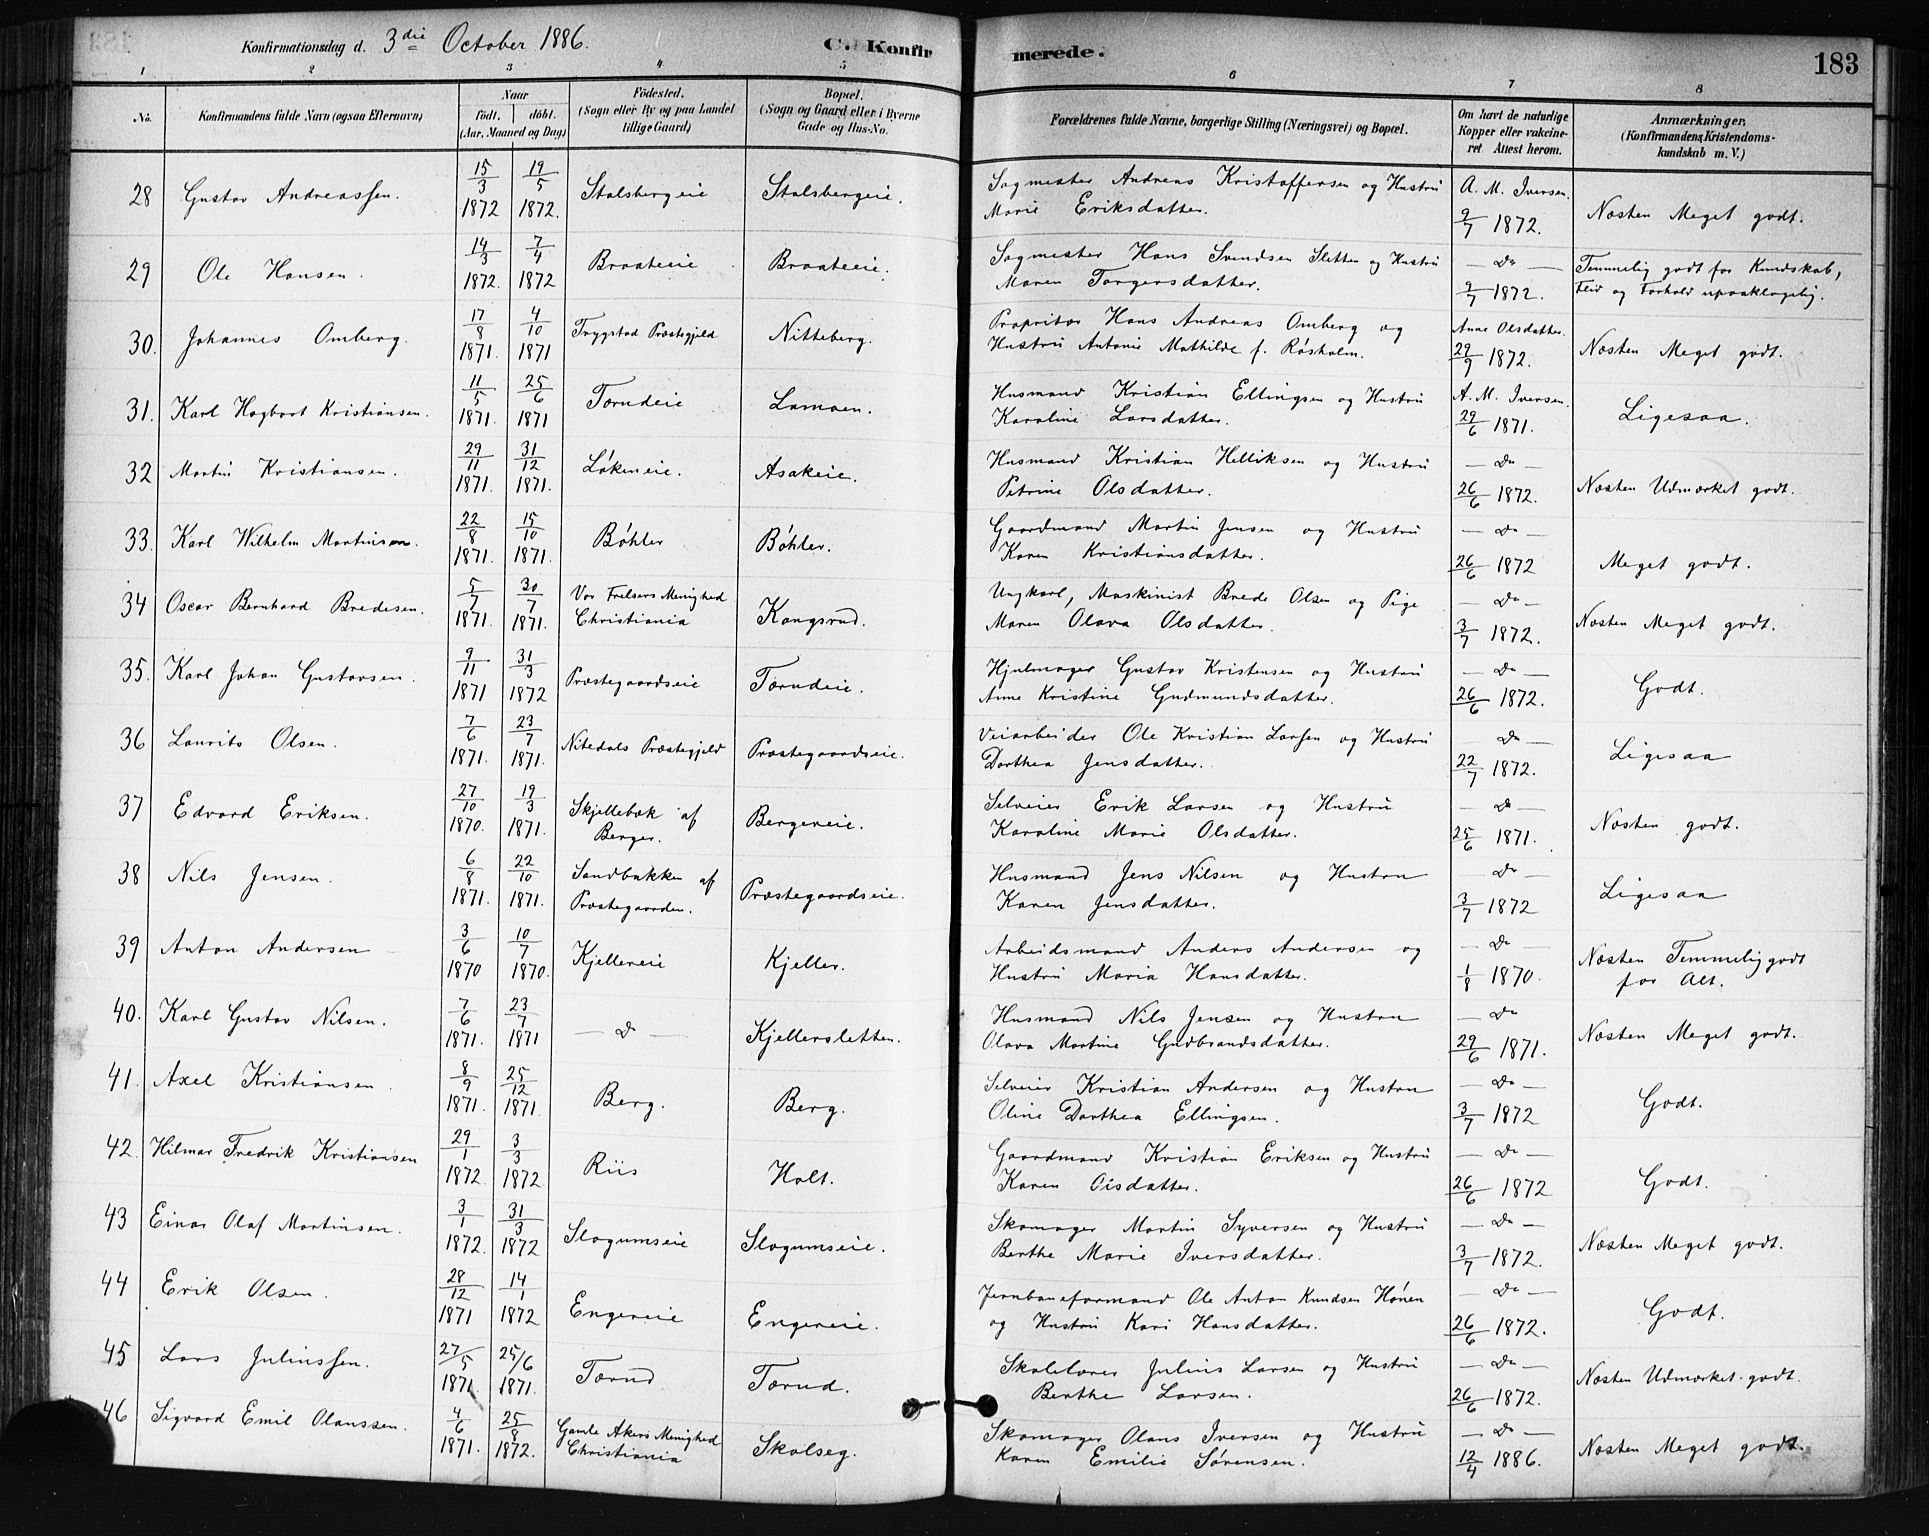 Konfirmationsdag d. 3die October 1886. C. Konfirmerede. 183
1 2 3 4 5 6 7 8
No. Konfirmandens fulde Navn (ogsaa Efternavn) Naar födt. döbt. (Aar, Maaned og Dag) Födested. (Sogn eller By og paa Landet tillige Gaard) Bopæl. (Sogn og Gaard eller i Byerne Gade og Hus-No. Forældrenes fulde Navne, borgerlige Stilling (Næringsvei) og Bopæl. Om havt de naturlige Kopper eller vakcineret Attest herom. Anmærkninger. (Konfirmandens Kristendomskundskab m. V.)
28 Gustav Andreassen. 15/3 1872 19/5 1872. Stalsbergeie Stalsbergeie. Sagmester Andreas Kristoffersen og Hustru Marie Eriksdatter. A. M. Iversen. 9/7 1872. Næsten Meget godt.
29 Ole Hansen. 14/3 1872. 7/4 1872 Braateeie Braateeie. Sagmester Hans Svendsen Sletten og Hustru Maren Torgersdatter. — Do — 9/7 1872. Temmelig godt for Kundskab, Flid og Forhold upaaklagelig.
30. Johannes Omberg. 17/8 1871. 4/10 1871 Trygstad Præstegjeld Nitteberg. Propritær Hans Andreas Omberg og Hustru Antonie Mathilde f. Røsholm. Anne Olsdatter. 29/9 1872. Næsten Meget godt.
31. Karl Hagbart Kristiansen. 11/5 1871. 25/6 1871 Tærudeie Lamoen. Husmand Kristian Ellingsen og Hustru Karoline Larsdatter. A. M. Iversen. 29/6 1871. Ligesaa.
32 Martin Kristiansen. 29/11 1871. 31/12 1871. Løkeneie. Asakeie. Husmand Kristian Helliksen og Hustru Petrine Olsdatter. — Do — 26/6 1872. Næsten Udmærket godt.
33. Karl Wilhelm Martinsen. 22/8 1871. 15/10 1871. Bøhler Bøhler. Gaardmand Martin Jensen og Hustru Karen Kristiansdatter. — Do — 26/6 1872 Meget godt.
34 Oscar Bernhard Bredesen. 5/7 1871. 30/7 1871. Vor Frelsers Menighed Christiania Kongsrud. Ungkarl, Maskinist Brede Olsen og Pige Maren Olava Olsdatter. — Do — 3/7 1872. Næsten Meget godt.
35. Karl Johan Gustavsen. 9/11 1871 31/3 1872 Præstegaardseie Tærudeie. Hjulmager Gustav Kristensen og Hustru Anne Kristine Gudmundsdatter. — Do — 26/6 1872. Godt.
36 Laurits Olsen. 7/6 1871. 23/7 1871. Nitedals Præstegjeld Præstegaardseie. Veiarbeider Ole Kristian Larsen og Hustru Dorthea Jensdatter. — Do — 22/7 1872. Ligesaa
37 Edvard Eriksen. 27/10 1870. 19/3 1871. Skjellebæk af Berger. Bergereie. Selveier Erik Larsen og Hustru Karoline Marie Olsdatter. — Do — 25/6 1871. Næsten godt.
38 Nils Jensen. 6/8 1871. 22/10 1871. Sandbakken af Præstegaarden. Præstegaardseie. Husmand Jens Nilsen og Hustru Karen Jensdatter. — Do — 3/7 1872 Ligesaa
39 Anton Andersen 3/6 1870 10/7 1870. Kjellereie Kjeller. Arbeidsmand Anders Andersen og Hustru Maria Hansdatter. — Do — 1/8 1870. Næsten Temmelig godt for Alt.
40. Karl Gustav Nilsen. 7/6 1871. 23/7 1871 — Do — Kjellersletten. Husmand Nils Jensen og Hustru Olava Martine Gudbrandsdatter. — Do — 29/6 1871. Næsten Meget godt.
41. Axel Kristiansen. 8/9 1871. 25/12 1871. Berg. Berg. Selveier Kristian Andersen og Hustru Oline Dorthea Ellingsen. — Do — 3/7 1872 Godt.
42. Hilmar Fredrik Kristiansen 29/1 1872. 3/3 1872 Riis Holt. Gaardmand Kristian Eriksen og Hustru Karen Olsdatter. — Do — 26/6 1872 Godt.
43 Einar Olaf Martinsen. 3/1 1872. 31/3 1872 Slogumseie Slogumseie. Skomager Martin Syversen og Hustru Berthe Marie Iversdatter. — Do — 3/7 1872. Næsten Meget godt.
44 Erik Olsen. 28/12 1871 14/1 1872 Engereie Engereie. Jernbaneformand Ole Anton Knudsen Hønen og Hustru Kari Hansdatter. — Do — 26/6 1872. Godt.
45 Lars Juliussen. 27/5 1871. 25/6 1871. Tærud Tærud. Skolelærer Julius Larsen og Hustru Berthe Larsen. — Do — 26/6 1872. Næsten Udmærket godt.
46 Sigvard Emil Olaussen. 4/6 1871. 25/8 1872. Gamle Akers Menighed Christiania Skolseg. Skomager Olaus Iversen og Hustru Karen Emilie Sørensen. — Do — 12/4 1886. Næsten Meget godt.